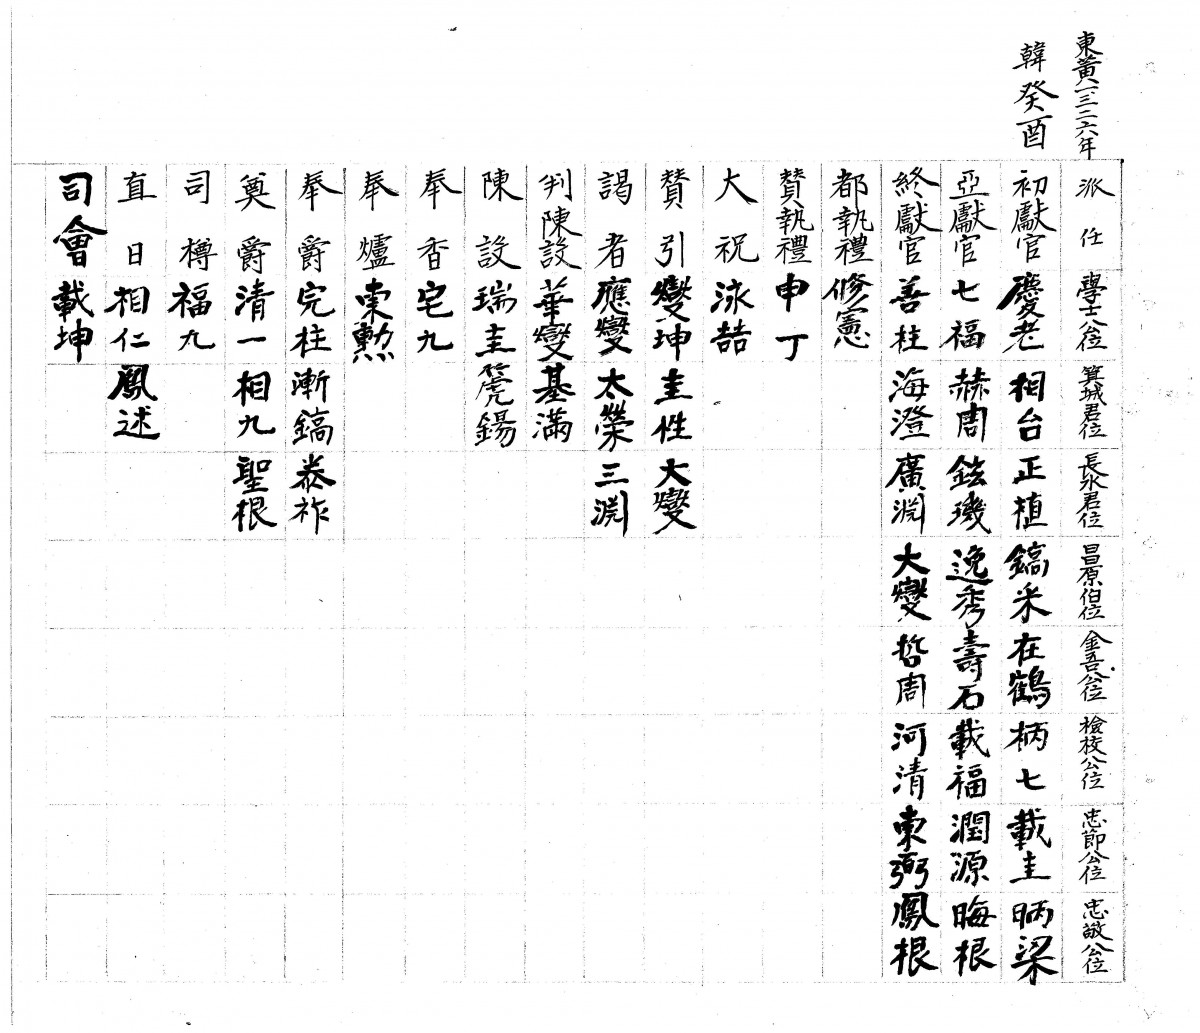 東黃一三二六年
韓癸酉
派任 學士公位 箕城君位 長水君位 昌原伯位 金吾公位 檢校公位 忠節公位 忠敬公位
初獻官 慶老 相台 正植 鎬米 在鶴 柄七 載圭 昞梁
亞獻官 七福 赫周 鉉璣 逸秀 壽石 載福 潤源 晦根
終獻官 善柱 海澄 廣淵 大燮 哲周 河清 東弼 鳳根
都執禮 修憲
贊執禮 申丁
大祝 泳喆
贊引 燮坤 圭性 大燮
謁者 應燮 太榮 三淵
判陳設 華燮 基滿
陳設 瑞圭 箎錫
奉香 宅九
奉爐 東勲
奉爵 完柱 漸鎬 泰祚
奠爵 清一 相九 聖根
司樽 福九
直日 相仁 鳳述
司會 載坤